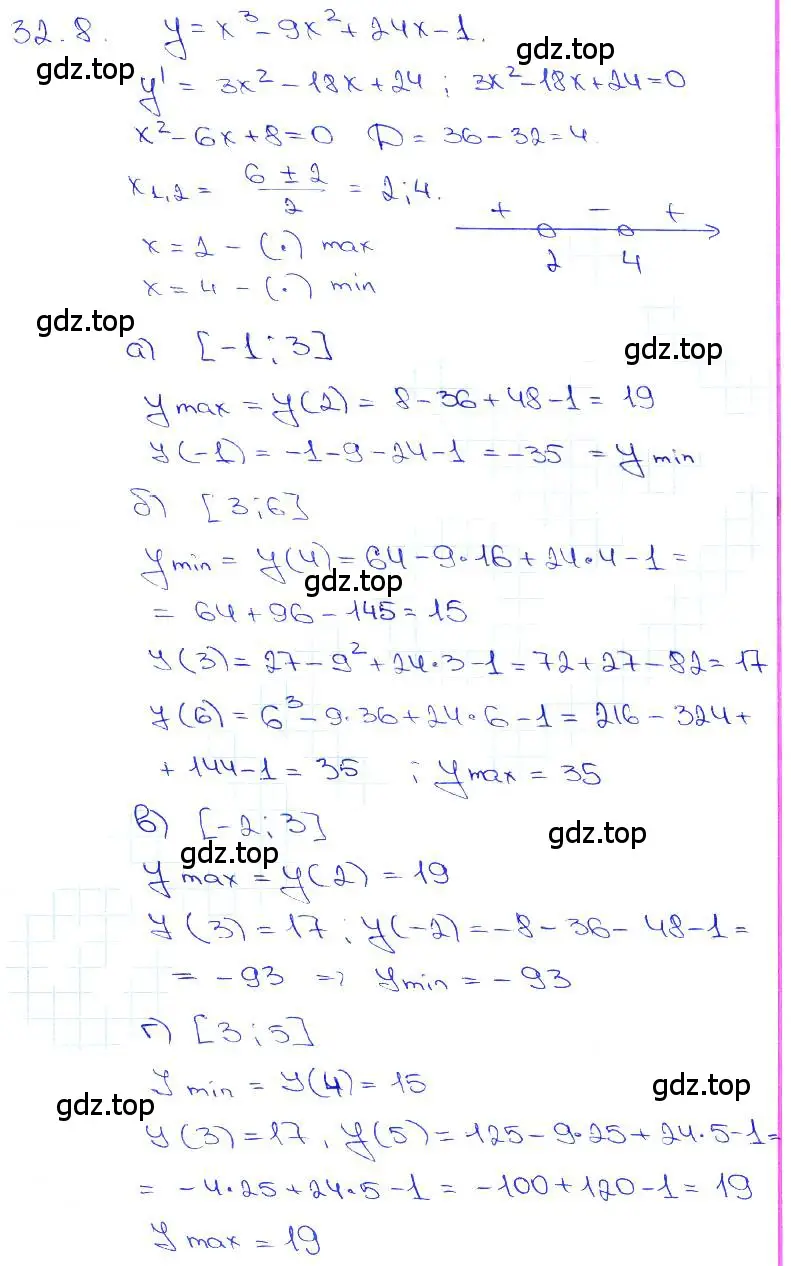 32.8. y = x³ - 9x² + 24x - 1.
gdz.top
gdz.top
y' = 3x² - 18x + 24 ; 3x² - 18x + 24 = 0
x² - 6x + 8 = 0 D = 36 - 32 = 4.
x₁,₂ = (6 ± 2)/2 = 2; 4.
+ - +
2 4
x = 2 - (·) max
x = 4 - (·) min
gdz.top
gdz.top
а) [-1; 3]
y max = y(2) = 8 - 36 + 48 - 1 = 19
y(-1) = -1 - 9 - 24 - 1 = -35 = y min
б) [3; 6]
y min = y(4) = 64 - 9·16 + 24·4 - 1 =
gdz.top
= 64 + 96 - 145 = 15
y(3) = 27 - 9² + 24·3 - 1 = 72 + 27 - 82 = 17
y(6) = 6³ - 9·36 + 24·6 - 1 = 216 - 324 +
+ 144 - 1 = 35 ; y max = 35
в) [-2; 3]
gdz.top
gdz.top
y max = y(2) = 19
y(3) = 17 ; y(-2) = -8 - 36 - 48 - 1 =
= -93 => y min = -93
г) [3; 5]
y min = y(4) = 15
gdz.top
gdz.top
y(3) = 17, y(5) = 125 - 9·25 + 24·5 - 1 =
= -4·25 + 24·5 - 1 = -100 + 120 - 1 = 19
y max = 19